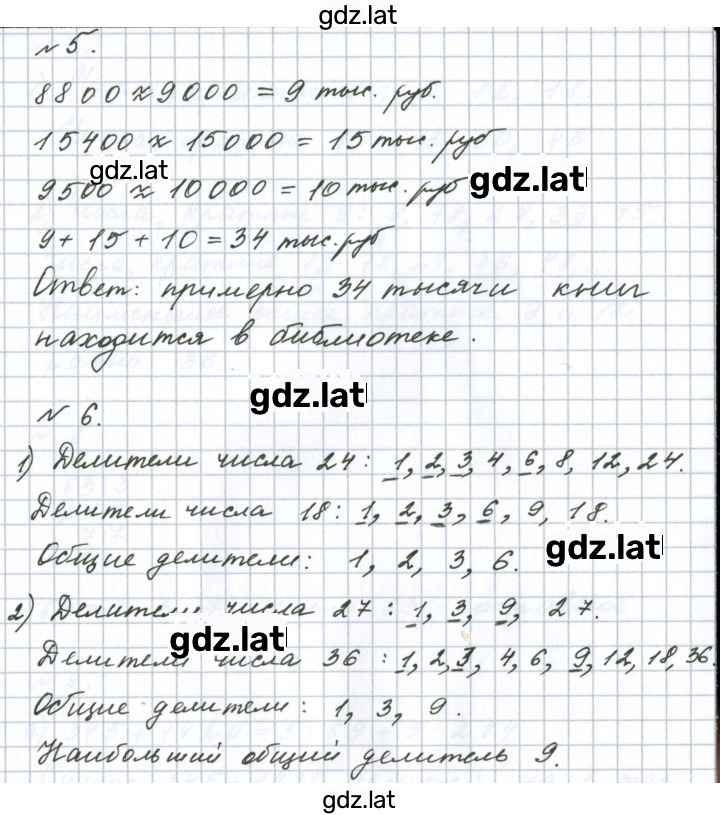 gdz.lat
№ 5.
8800 ≈ 9000 = 9 тыс. руб.
15400 ≈ 15000 = 15 тыс. руб
gdz.lat
9500 ≈ 10000 = 10 тыс. руб
gdz.lat
9 + 15 + 10 = 34 тыс. руб
Ответ: примерно 34 тысячи книг
находится в библиотеке.
gdz.lat
№ 6.
1) Делители числа 24: 1, 2, 3, 4, 6, 8, 12, 24.
Делители числа 18: 1, 2, 3, 6, 9, 18.
Общие делители: 1, 2, 3, 6.
gdz.lat
2) Делители числа 27: 1, 3, 9, 27.
gdz.lat
Делители числа 36: 1, 2, 3, 4, 6, 9, 12, 18, 36.
Общие делители: 1, 3, 9.
Наибольший общий делитель 9.
gdz.lat